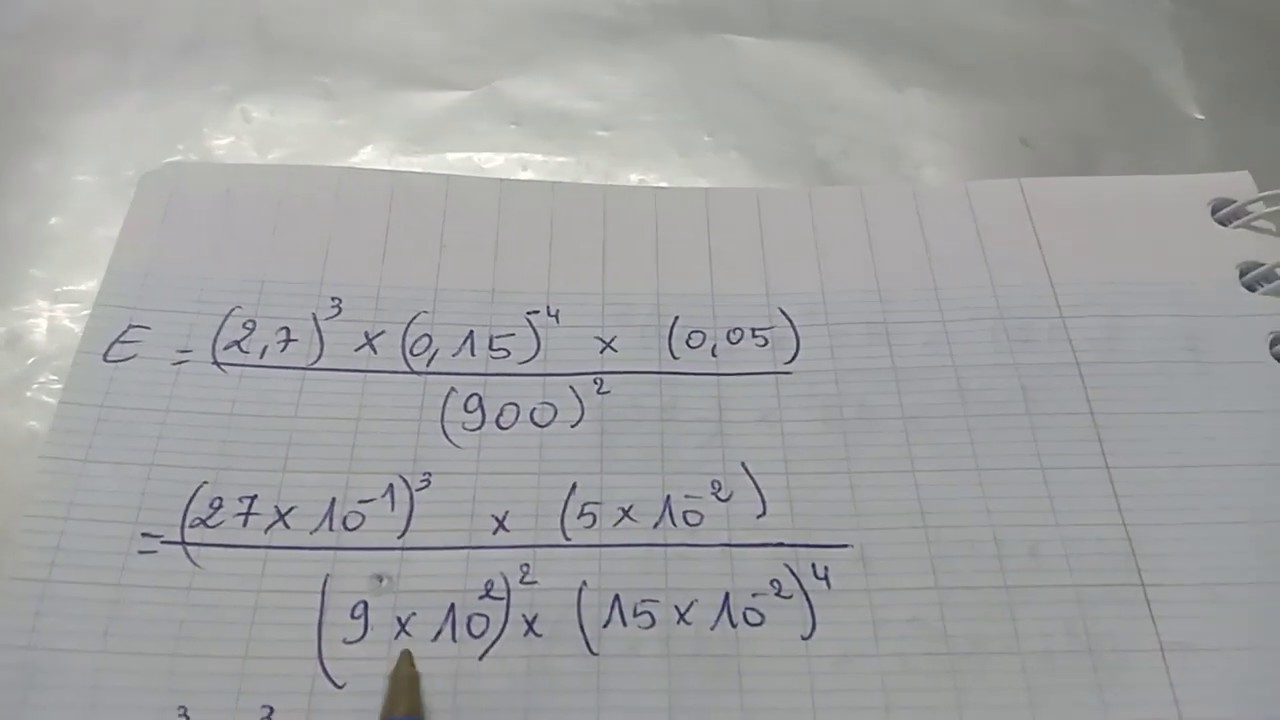 E = (2,7)³ × (0,15)⁻⁴ × (0,05)
(900)²
= (27 × 10⁻¹)³ × (5 × 10⁻²)
(9 × 10²)² × (15 × 10⁻²)⁴
3 3